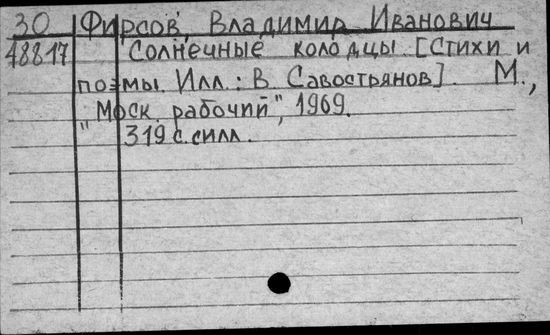 30 Фирсов, Владимир Иванович
48817 Солнечные колодцы [Стихи и
поэмы. Илл.: В. Савостьянов]. М.,
"Моск. рабочий", 1969.
319 с. силл.